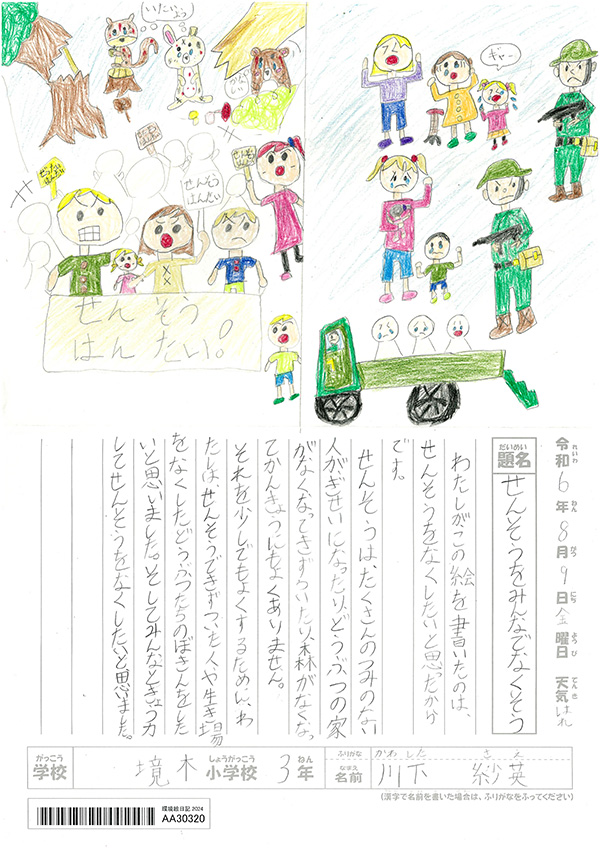 いたいよっ
ぜったい
はんたい
せんそう
はんたい
せんそう
はんたい。
ギャー
令和6年8月9日金曜日 天気はれ
れいわ ねん がつ にち ようび てんき
だいめい
題名
せんそうをみんなでなくそう
わたしがこの絵を書いたのは、
せんそうをなくしたいと思ったから
です。
せんそうは、たくさんのつみのない
人がぎせいになったり、どうぶつの家
がなくなってきずついたり、森がなくなっ
てかんきょうにもよくありません。
それを少しでもよくするために、わ
たしは、せんそうできずついた人や生き場
をなくしたどうぶつたちのぼきんをした
いと思いました。そしてみんなときょう力
してせんそうをなくしたいと思いました。
がっこう しょうがっこう ねん
学校 境木小学校 3年
ふりがな かわした さえ
なまえ
名前 川下 紗英
(漢字で名前を書いた場合は、ふりがなをふってください)
環境絵日記 2024
AA30320